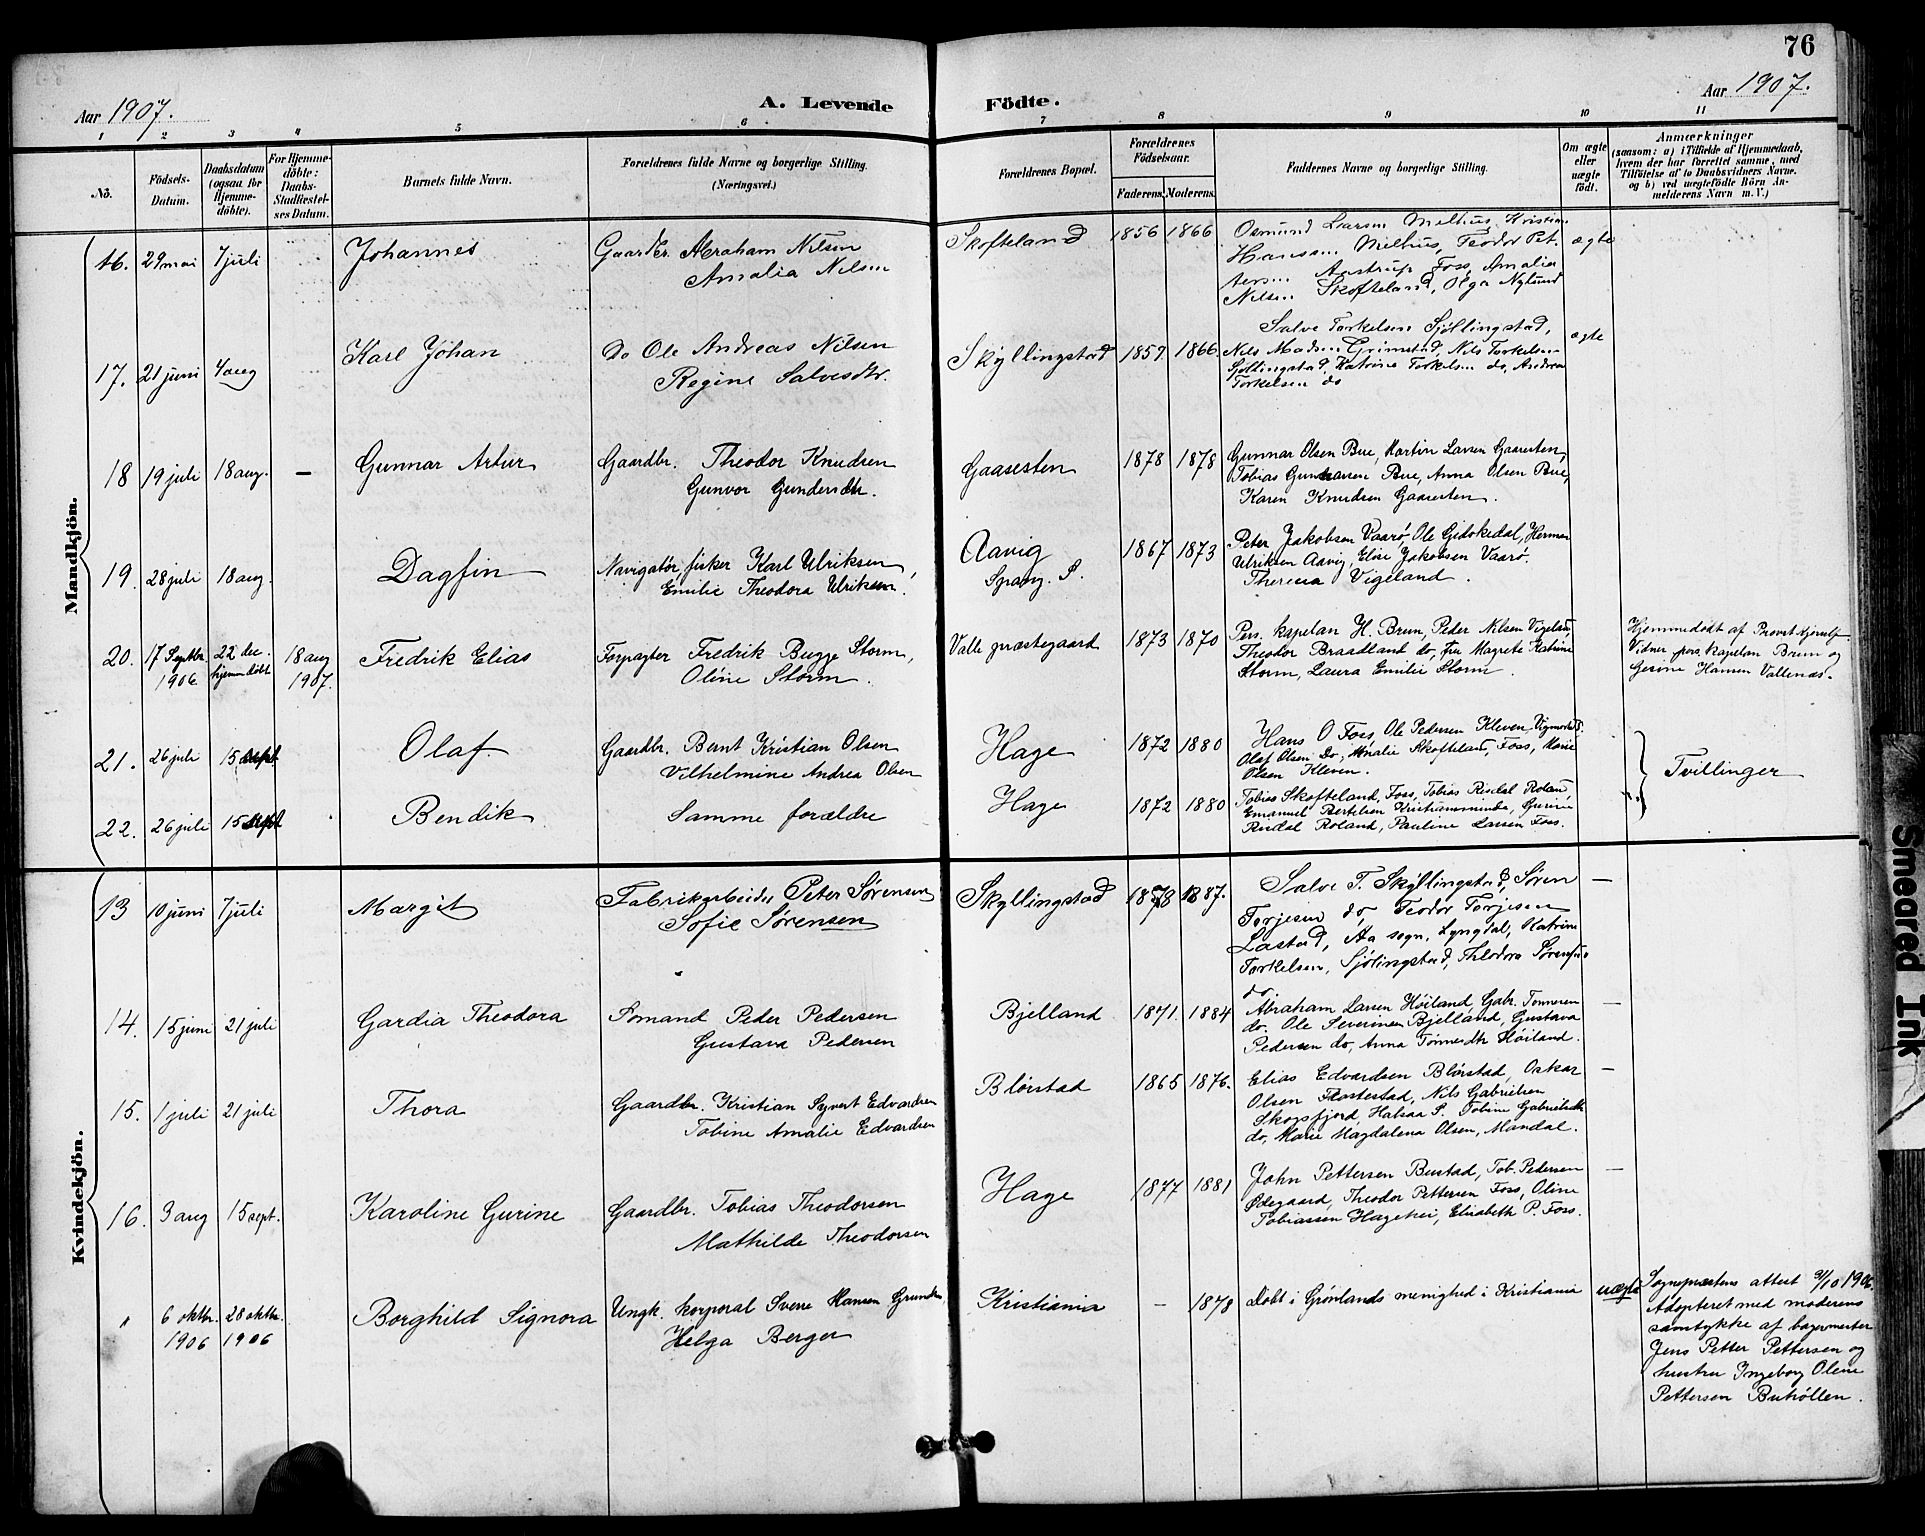 76
Aar 1907.
A. Levende Födte.
Aar 1907.
1 2 3 4 5 6 7 8 9 10 11
No.
Födsels-Datum.
Daabsdatum (ogsaa for Hjemme-döbte).
For Hjemme-döbte: Daabs-Stadfæstel-ses Datum.
Barnets fulde Navn.
Forældrenes fulde Navne og borgerlige Stilling.
(Næringsvei.)
Forældrenes Bopæl.
Forældrenes Födselsaar.
Faderens. Moderens.
Faddernes Navne og borgerlige Stilling.
Om ægte eller uægte födt.
Anmærkninger
(saasom: a) i Tilfælde af Hjemmedaab,
hvem der har forrettet samme, med
Tilföielse af to Daabsvidners Navne.
og b) ved uægtefödte Börn An-
melderens Navn m. V.)
Mandkjön.
16. 29 mai 7 juli Johannes Gaardbr. Abraham Nilsen
Amalia Nilsen
Skofteland 1856 1866 Osmund Larsen Melhus, Kristian
Hansen Melhus, Teodor Pet.
tersen Aastrup Foss, Amalia
Nilsen Skofteland, Olga Nylund
ægte
17. 21 juni 4 aug Karl Johan do Ole Andreas Nilsen
Regine Salvesdtr.
Skyllingstad 1859 1866 Salve Torkelsen Sjøllingstad,
Nils Madsen Grimstad, Nils Torkelsen
Sjøllingstad, Katrine Torkelsen do, Andrea
Torkelsen do
ægte
18 19 juli 18 aug. — Gunnar Artur Gaardbr. Theodor Knudsen
Gunvor Gundersdtr.
Gaaseesten 1878 1878 Gunnar Olsen Bue, Martin Larsen Gaaresten,
Tobias Gunnarsen Bue, Anna Olsen Bue,
Karen Knudsen Gaaresten.
19. 28 juli 18 aug. Dagfin Navigatør, fisker Karl Ulriksen,
Emilie Theodora Ulriksen.
Aavig
Spang. S.
1867 1873 Peter Jakobsen Vaarø, Ole Gidskedal, Herman
Ulriksen Aavig, Elise Jakobsen Vaarø.
Theresa Vigeland.
20. 17 Septbr. 1906 22 dec. hjemmedöbt 18 aug 1907. Fredrik Elias Forpagter Fredrik Bugge Storm,
Oline Storm.
Valle præstegaard 1873 1870 Pers. kapelan H. Brun, Peder Nilsen Vigeland,
Theodor Braadland do, Fru Magrete Katrine
Storm, Laura Emilie Storm.
Hjemmedöbt af Provst Kjerulf
Vidner pers. kapelan Brun og
Gesine Hansen Vallenæs.
21. 26 juli 15 sept Olaf Gaardbr. Bernt Kristian Olsen
Vilhelmine Andrea Olsen
Hage 1872 1880 Hans O Foss, Ole Pedersen Kleven, Vigmostad.
Olaf Olsen Do, Amalie Skofteland, Foss, Marie
Olsen Kleven.
Tvillinger
22. 26 juli 15 sept Bendik Samme forældre
Hage 1872 1880 Tobias Skofteland, Foss, Tobias Risdal Roland,
Emanuel Bertelsen Kristiansminde, Gurine
Risdal Roland, Pauline Larsen Foss.
Kvindekjön.
13 10 juni 7 juli Margit Fabrikarbeider Peter Sørensen
Sofie Sørensen
Skyllingstad 1878 1887. Salve T. Skyllingstad, Søren
Torjesen do, Teodor Torjesen
Lastad, Aa sogn. Lyngdal, Katrine
Torkelsen, Sjølingstad, Theodora Sørensen
do.
—
14. 15 juni 21 juli Gardia Theodora Sømand Peder Pedersen
Gustava Pedersen
Bjelland 1871. 1884 Abraham Larsen Høiland, Gabr. Tønnesen
do. Ole Severinsen Bjelland, Gustava
Pedersen do, Anna Tønnesdtr Høiland.
—
15. 1 juli 21 juli Thora Gaardbr. Kristian Syvert Edvardsen
Tobine Amalie Edvardsen
Blørstad 1865 1876. Elias Edvardsen Blørstad, Oskar
Olsen Fastestad, Nils Gabrielsen
Skogsfjord, Halsaa P. Tobine Gabrielsdtr
do, Marie Magdalena Olsen, Mandal.
—
16. 3 aug 15 sept. Karoline Gurine Gaardbr. Tobias Theodorsen
Mathilde Theodorsen
Hage 1877 1881 John Pettersen Bustad, Tob. Pedersen
Ødegaard, Theodor Pettersen Foss, Oline
Tobiassen Hagehei, Elisabeth P. Foss.
—
" 6 oktbr. 1906 28 oktbr. 1906 Borghild Signora Ungk. korporal Sverre Hansen
Helga Berger
Kristiania — 1878 Døbt i Grønlands menighed i Kristiania
uægte
Sogneprestens attest 31/10 1906.
Adopteret med moderens
samtykke af bagermester
Jens Petter Pettersen og
hustru Ingeborg Oline
Pettersen Buhöllen.
Smeared Ink